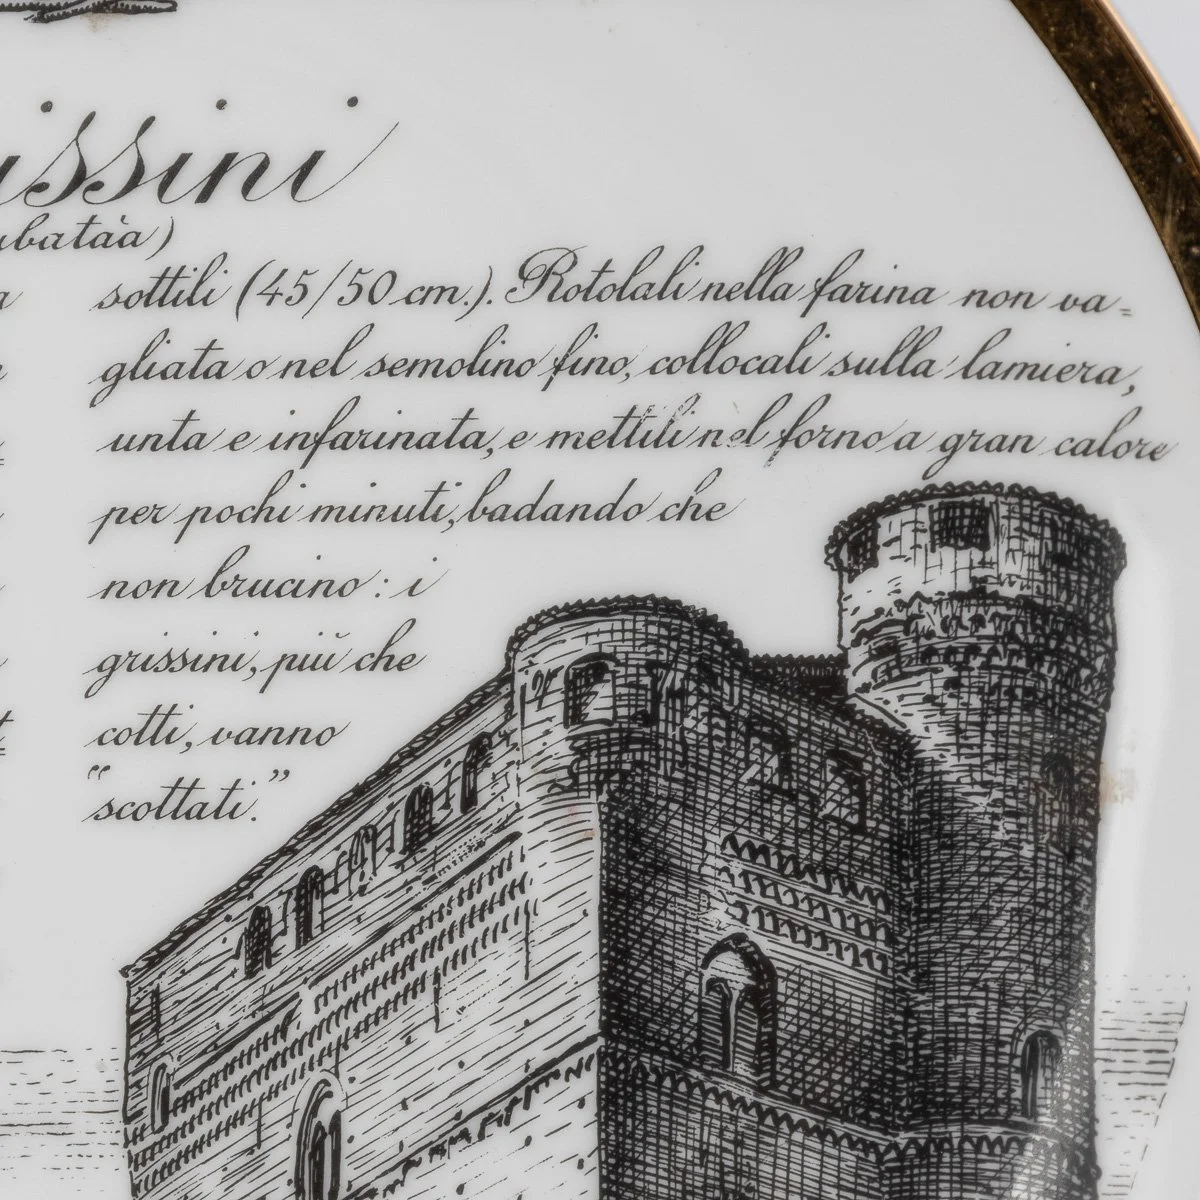 issini
batàa)
a
sottili (45/50 cm.). Rotolali nella farina non va=
gliata o nel semolino fino, collocali sulla lamiera,
unta e infarinata, e mettili nel forno a gran calore
per pochi minuti, badando che
non brucino: i
grissini, più che
cotti, vanno
t
“scottati.”